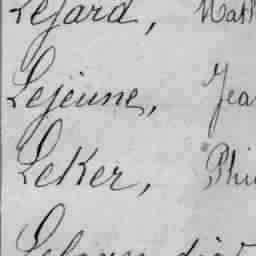 Lejard, Math
Lejeune, Jea
LeKer, Phi